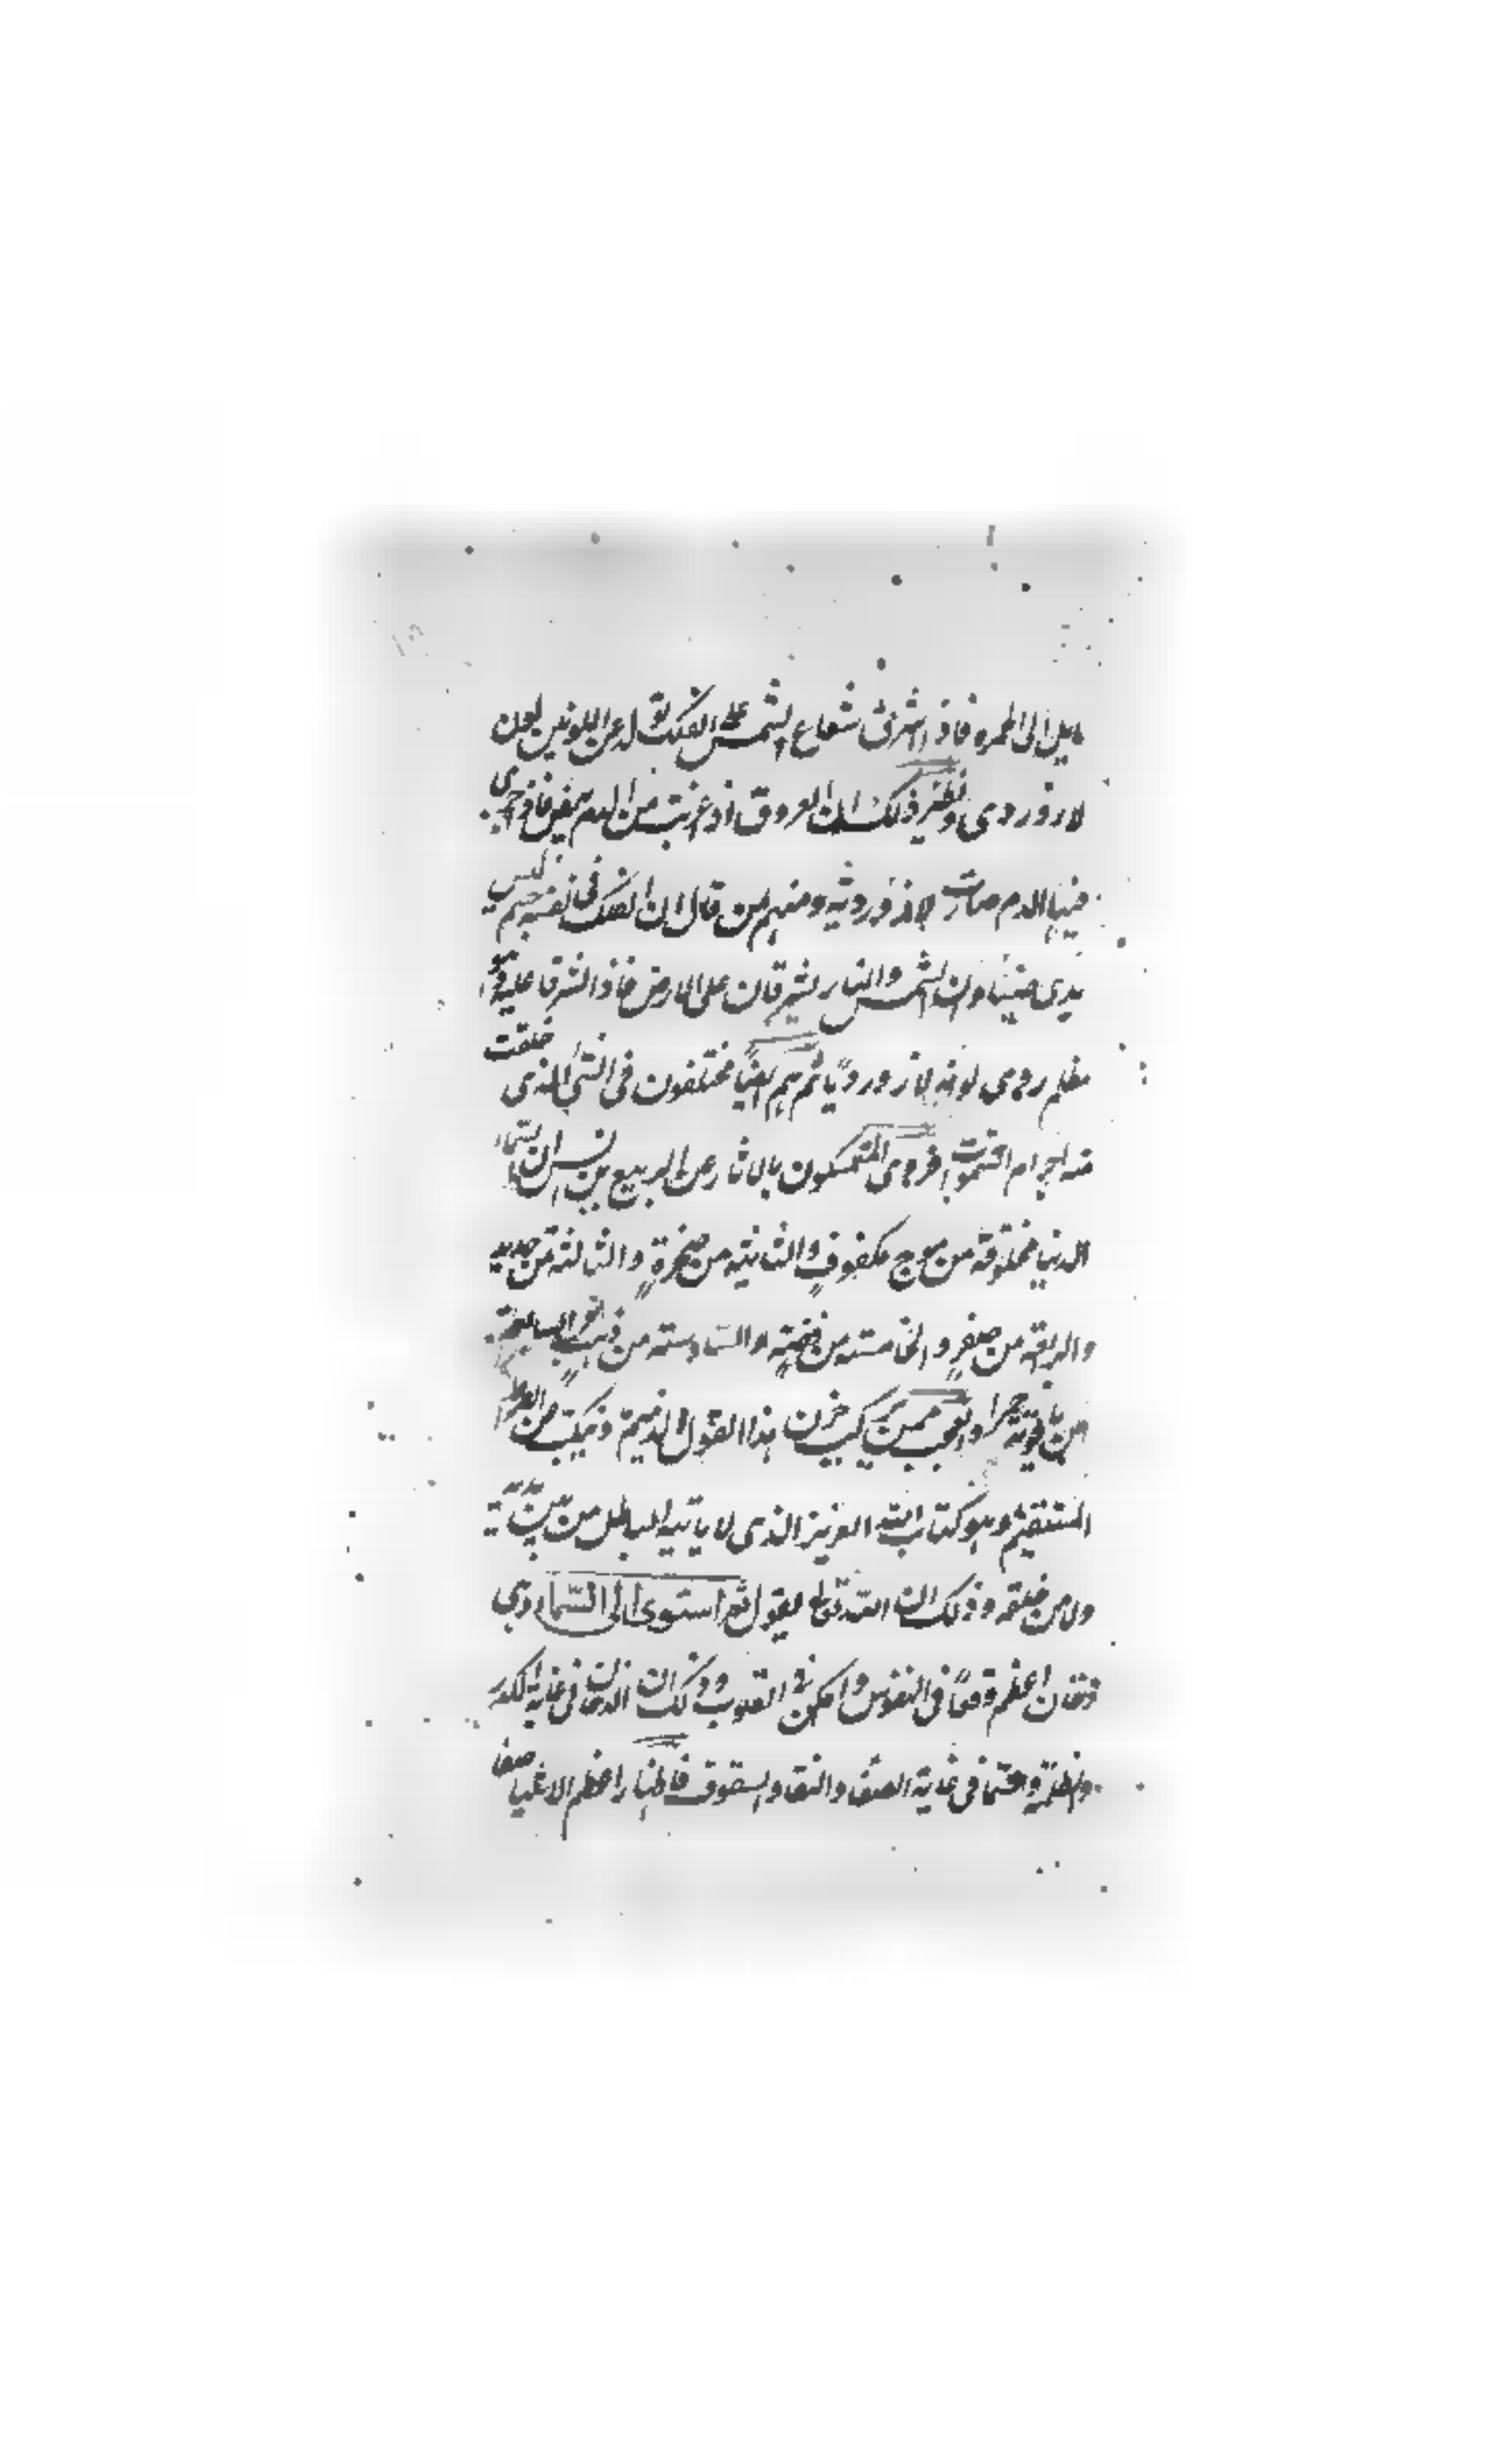 مايل الى الحمره فاذا اشرق شعاع الشمس على الفلك تولد عن اللونين لون
لازوردى ونظير ذلك ان العروق اذ عريت من الدم تبيض فاذ جرى
فيها الدم صارت لاذوردية ومنهم من قال ان الفلك فى نفسه جسم ليس
بذى ضياء وان الشمس والنار يشرقان على الارض فاذا اشرقا عليه وهو
مظلم روى لونه لازوردياً ثم هم ايضاً مختلفون فى الشئ الذى خلقت
منه اجرام السموات فروى المتمسكون بالاثار عن الربيع بن انس ان السماء
الدنيا مخلوقة من موج مكفوفٍ والثانية من صخرةٍ والثالثة من حديد
والرابعة من صفرٍ والخامسة من فضةٍ والسادسة من ذهبٍ والسابعة
من ياقوتة حمراء والعجب ممن يركب هذا القول الذميم وينكب من الصراط
المستقيم وهو كتاب الله العزيز الذى لا ياتيه الباطل من بين يديه
ولا من خلفه وذلك ان الله تعالى يقول ثم استوى الى السماء وهى
دخان اعظم وقعاً فى النفوس وامكن فى القلوب وذلك ان الدخان فى غاية الكدر
والظلمة وفى غاية الصفا والنقا والسقوف اعظم الاغيا صفا